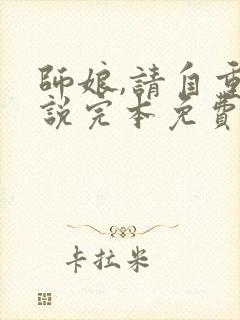 師娘,請自重
說完本免費
卡拉米